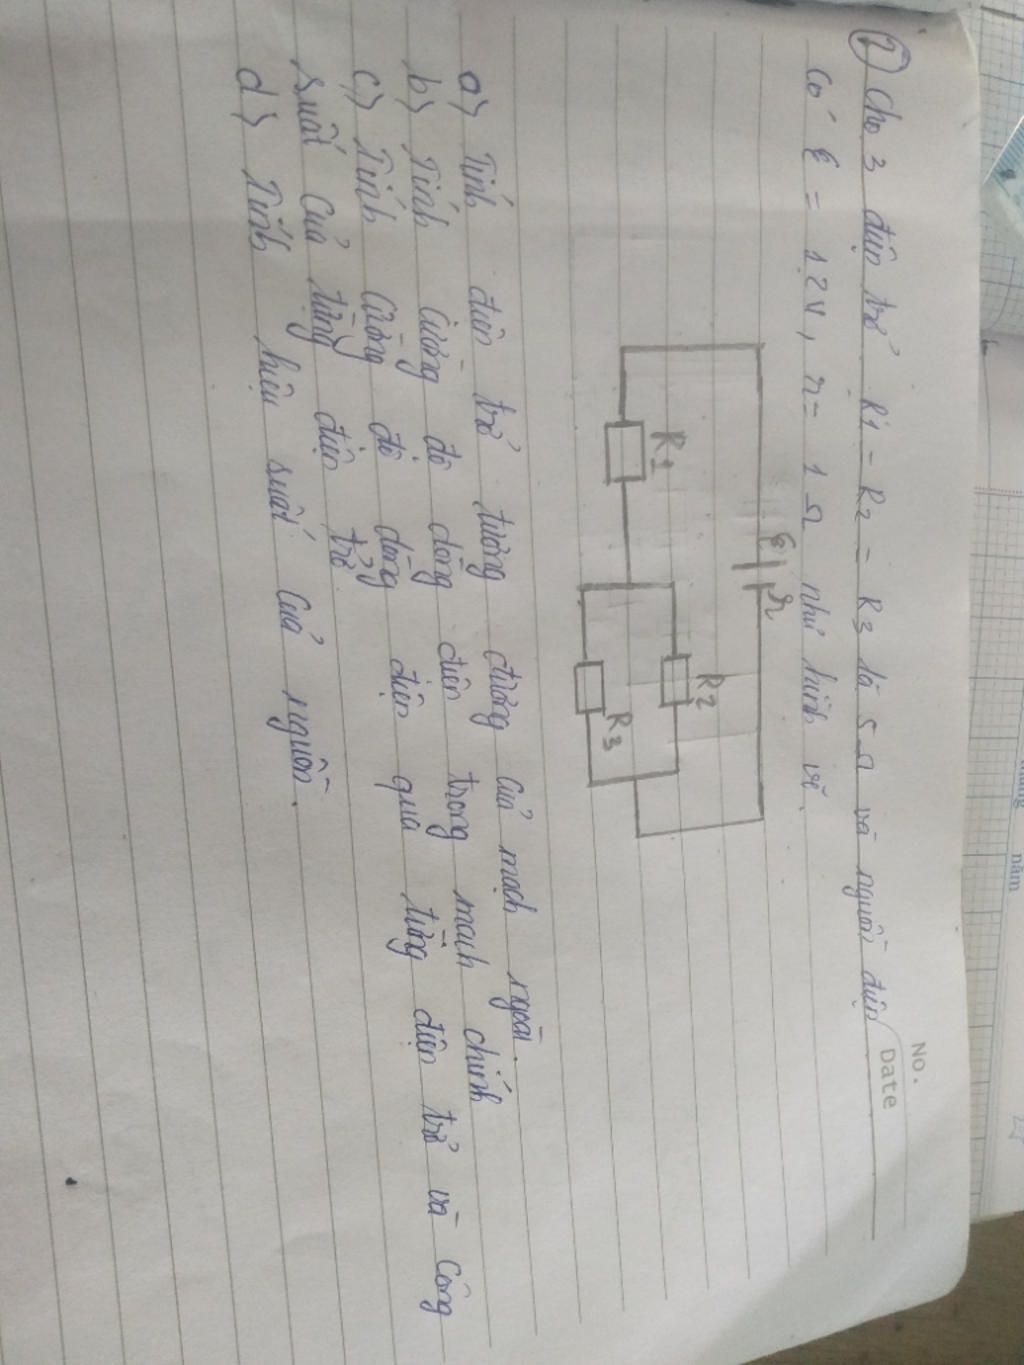 No.
Date
② Cho 3 điện trở R1 = R2 = R3 là 5 Ω và nguồn điện
Có ℰ = 12V, r = 1 Ω như hình vẽ.
ℰ r
R1
R2
R3
a) Tính điện trở tương đương của mạch ngoài.
b) Tính cường độ dòng điện trong mạch chính
c) Tính cường độ dòng điện qua từng điện trở và công
suất của từng điện trở
d) Tính hiệu suất của nguồn.
năm